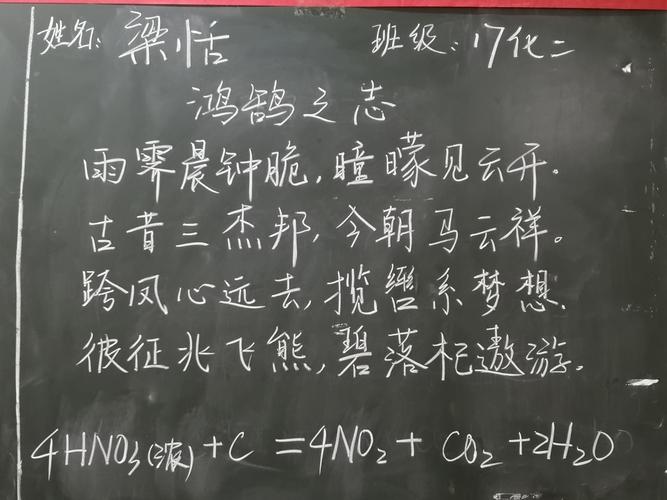 姓名: 梁恬 班级: 17化二
鸿鹄之志
雨霁晨钟脆,瞳矇见云开。
古昔三杰邦,今朝马云祥。
跨凤心远去,揽辔系梦想.
彼征兆飞熊,碧落杞遨游.
4HNO₃(浓)+C=4NO₂+CO₂+2H₂O